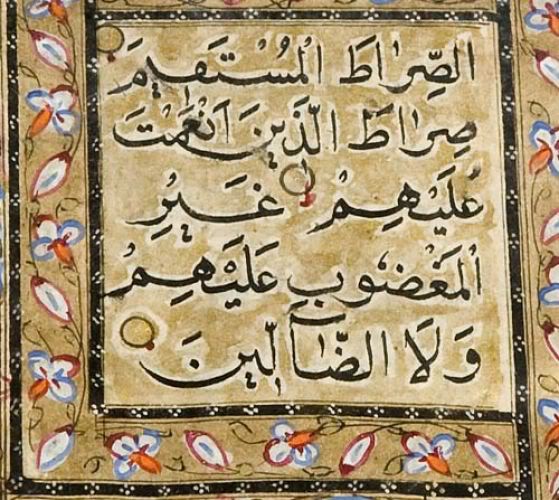 الصِّرٰاطَ الْمُسْتَقٖيمَ
صِرٰاطَ الَّذٖينَ اَنْعَمْتَ
عَلَيْهِمْ غَيْرِ
الْمَغْضُوبِ عَلَيْهِمْ
وَلَا الضَّٓالّٖينَ